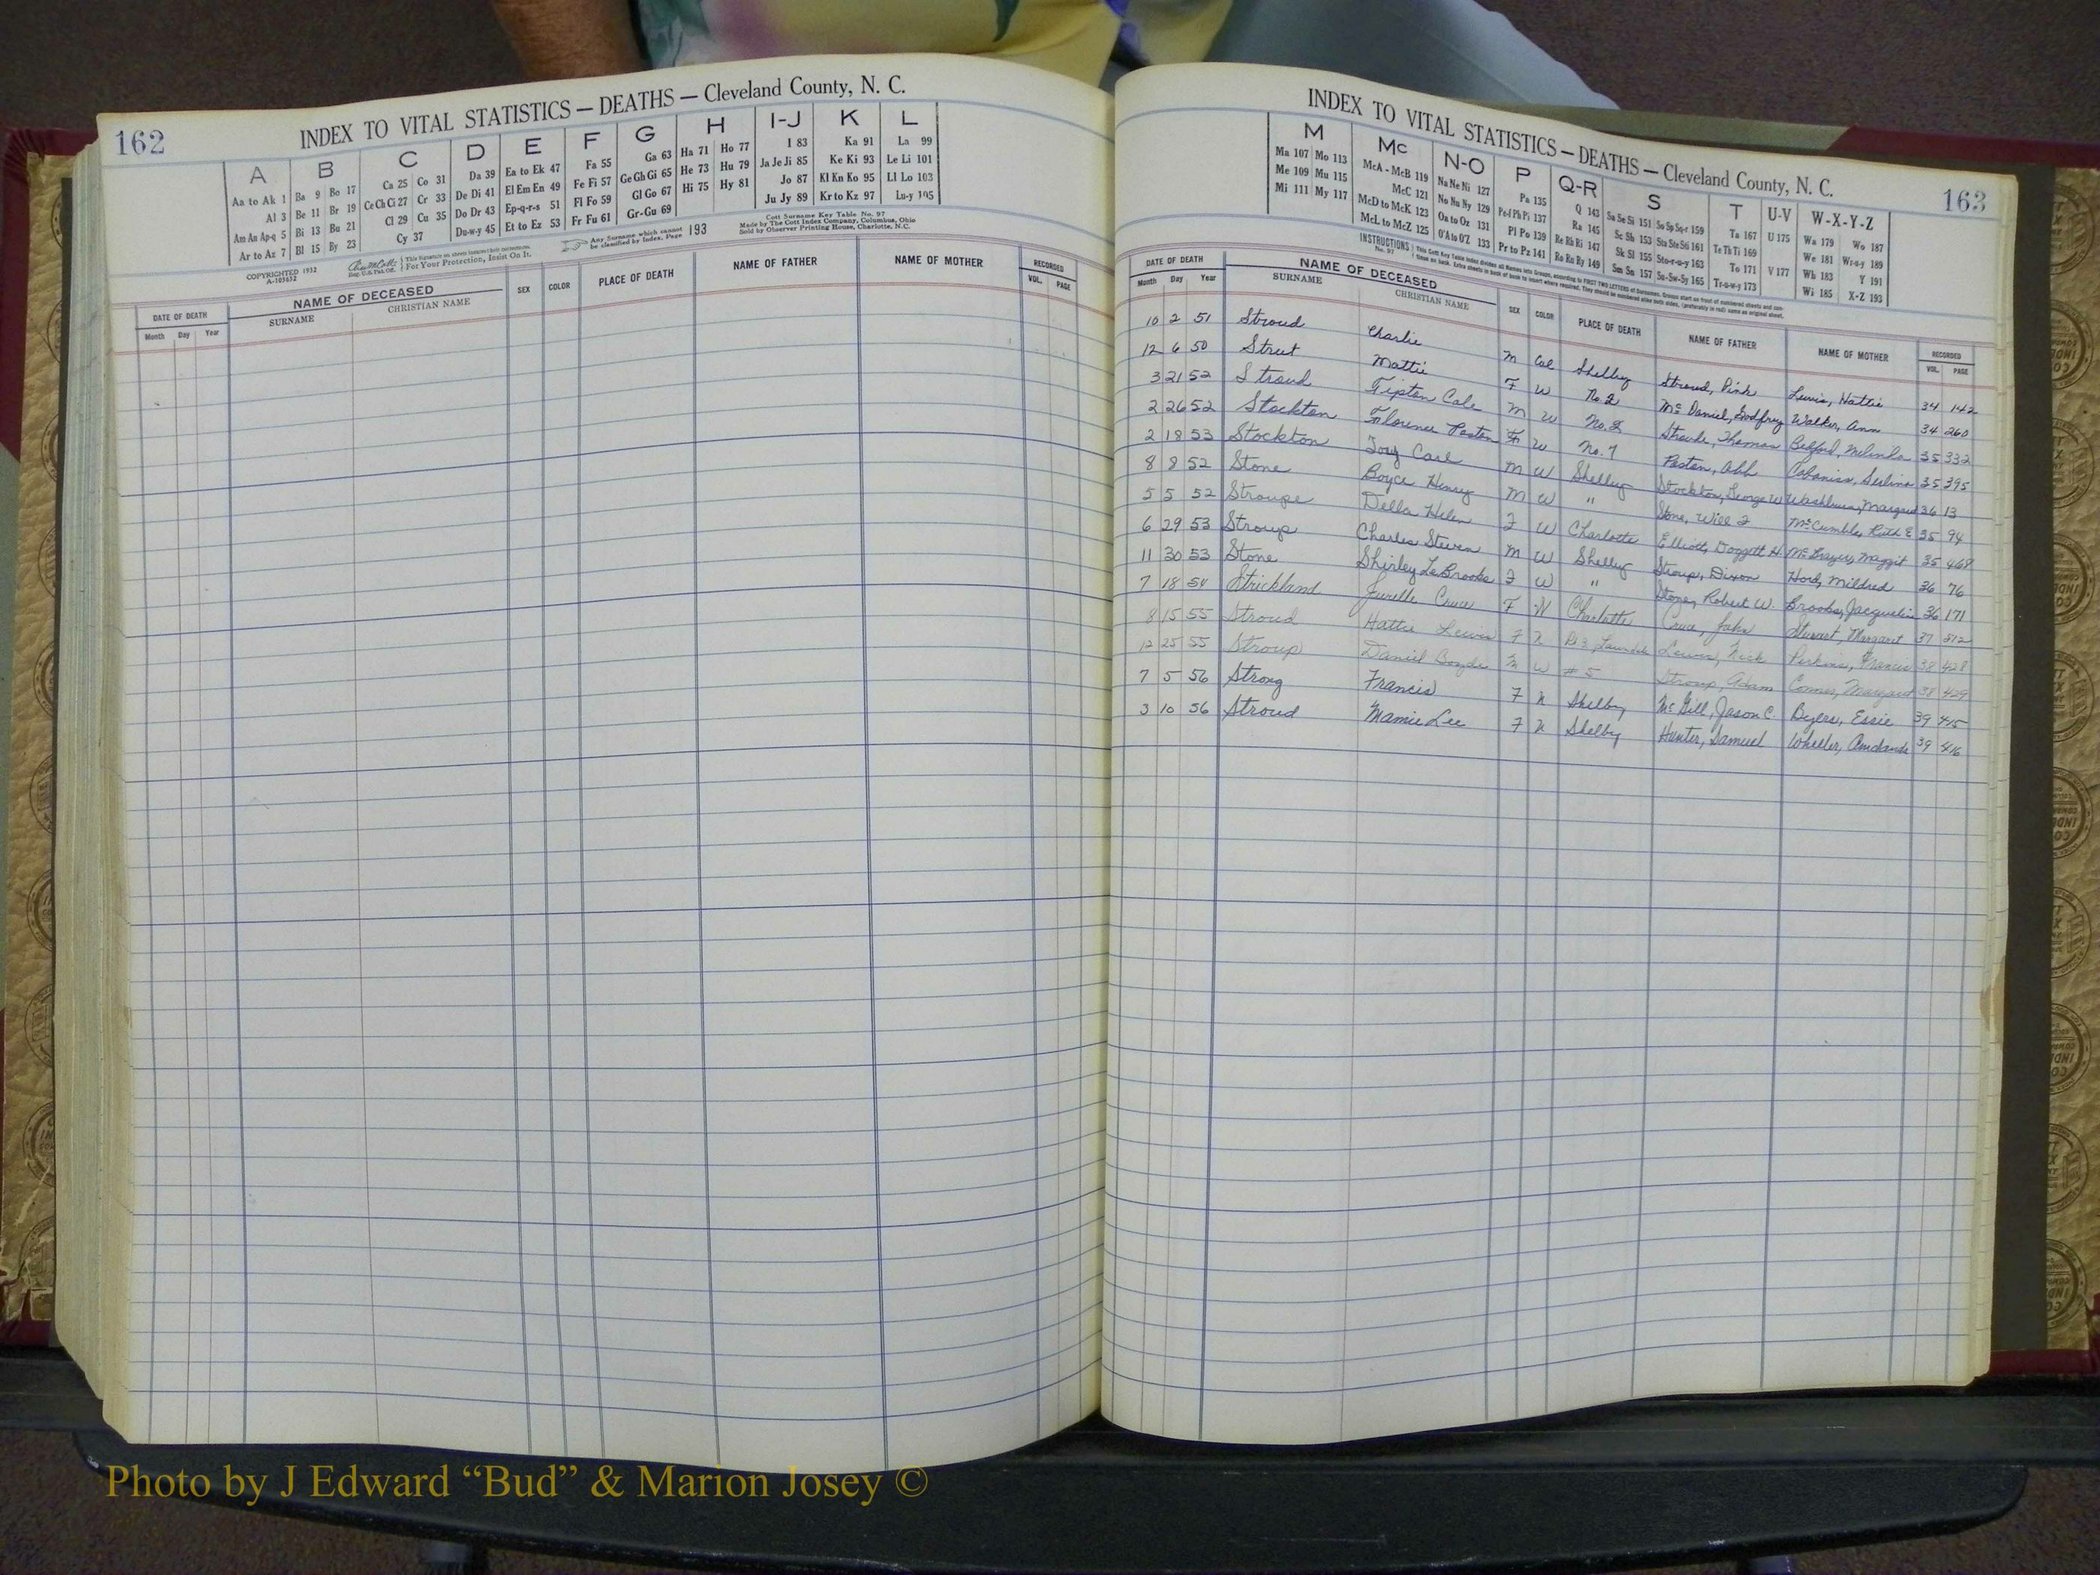 162
INDEX TO VITAL STATISTICS — DEATHS — Cleveland County, N. C.
A B C D E F G H I-J K L
Aa to Ak 1 Ba 9 Bo 17 Ca 25 Co 31 Da 39 Ea to Ek 47 Fa 55 Ga 63 Ha 71 Ho 77 I 83 Ka 91 La 99
Al 3 Be 11 Br 19 Ce Ch Ci 27 Cr 33 De Di 41 El Em En 49 Fe Fi 57 Ge Gh Gi 65 He 73 Hu 79 Ja Je Ji 85 Ke Ki 93 Le Li 101
Am An Ap-q 5 Bi 13 Bu 21 Cl 29 Cu 35 Do Dr 43 Ep-q-r-s 51 Fl Fo 59 Gl Go 67 Hi 75 Hy 81 Jo 87 Kl Kn Ko 95 Ll Lo 103
Ar to Az 7 Bl 15 By 23 Cy 37 Du-w-y 45 Et to Ez 53 Fr Fu 61 Gr-Gu 69 Ju Jy 89 Kr to Kz 97 Lu-y 105
COPYRIGHTED 1932
A-103652
This signature on sheets insures their correctness.
For Your Protection, Insist On It.
Any Surname which cannot be classified by Index, Page 193
Cott Surname Key Table No. 97
Made by The Cott Index Company, Columbus, Ohio
Sold by Observer Printing House, Charlotte, N.C.
DATE OF DEATH NAME OF DECEASED SEX COLOR PLACE OF DEATH NAME OF FATHER NAME OF MOTHER RECORDED
Month Day Year SURNAME CHRISTIAN NAME VOL. PAGE
163
INDEX TO VITAL STATISTICS — DEATHS — Cleveland County, N. C.
M Mc N-O P Q-R S T U-V W-X-Y-Z
Ma 107 Mo 113 McA - McB 119 Na Ne Ni 127 Pa 135 Q 143 Sa Se Si 151 So Sp Sq-r 159 Ta 167 U 175 Wa 179 Wo 187
Me 109 Mu 115 McC 121 No Nu Ny 129 Pe-f Ph Pi 137 Ra 145 Sc Sh 153 Sta Ste Sti 161 Te Th Ti 169 We 181 Wr-u-y 189
Mi 111 My 117 McD to McK 123 Oa to Oz 131 Pl Po 139 Re Rh Ri 147 Sk Sl 155 Sto-r-u-y 163 To 171 V 177 Wh 183 Y 191
McL to McZ 125 O'A to O'Z 133 Pr to Pz 141 Ro Ru Ry 149 Sm Sn 157 Su-Sw-Sy 165 Tr-u-w-y 173 Wi 185 X-Z 193
INSTRUCTIONS No. 97
DATE OF DEATH NAME OF DECEASED SEX COLOR PLACE OF DEATH NAME OF FATHER NAME OF MOTHER RECORDED
Month Day Year SURNAME CHRISTIAN NAME VOL. PAGE
10 2 51 Stroud Charlie M Col Shelby Stroud, Pink Lewis, Hattie 34 142
12 6 50 Mattie F W No. 2 McDaniel, Godfrey Walker, Ann 34 260
3 21 52 Stroud Tipton Cale M W No. 8 Thomas Melinda 35 332
2 26 52 Stockton Florence F W No. 7 Abb Cabaniss, 35 395
2 18 53 Stockton Carl M W Shelby Stockton, George W Washburn, Margaret 36 13
8 8 52 Stone Boyce Henry M W " Stone, Will Ruth E 35 94
5 5 52 Stroupe Della Helen F W Charlotte Elliott, Doggett H. McBrayer, 35 468
6 29 53 Stroup Charles Steven M W Shelby Stroup, Dixon Hord, Mildred 36 76
11 30 53 Stone Shirley LeBrooks F W " Stone, Robert W. Brooks, Jacquelin 36 171
7 18 54 Strickland F W Charlotte John Stewart, Margaret 37
8 15 55 Stroud Hattie Lewis F N Lewis, Nick Perkins, Francis 38 428
12 25 55 Stroup Daniel M W #5 Stroup, Adam Conner, Margaret 38 429
7 5 56 Strong Francis F N Shelby McGill, Jason C. Byers, Essie 39 415
3 10 56 Stroud Mamie Lee F N Shelby Hunter, Samuel 39 416
Photo by J Edward “Bud” & Marion Josey ©